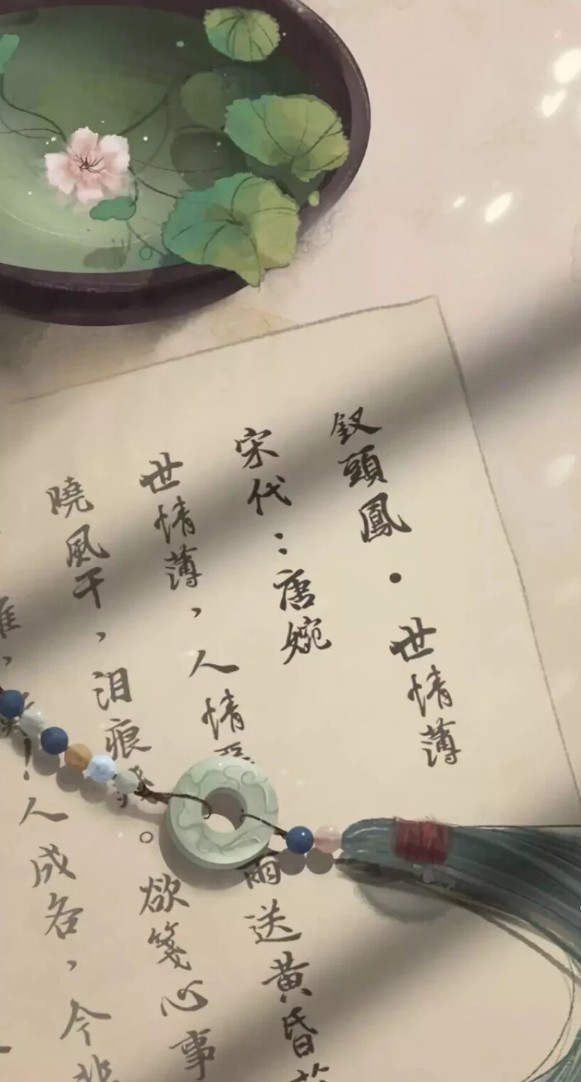 釵頭鳳·世情薄
宋代：唐婉
世情薄，人情惡雨送黃昏
曉風干，泪痕。欲箋心事
人成各，今非